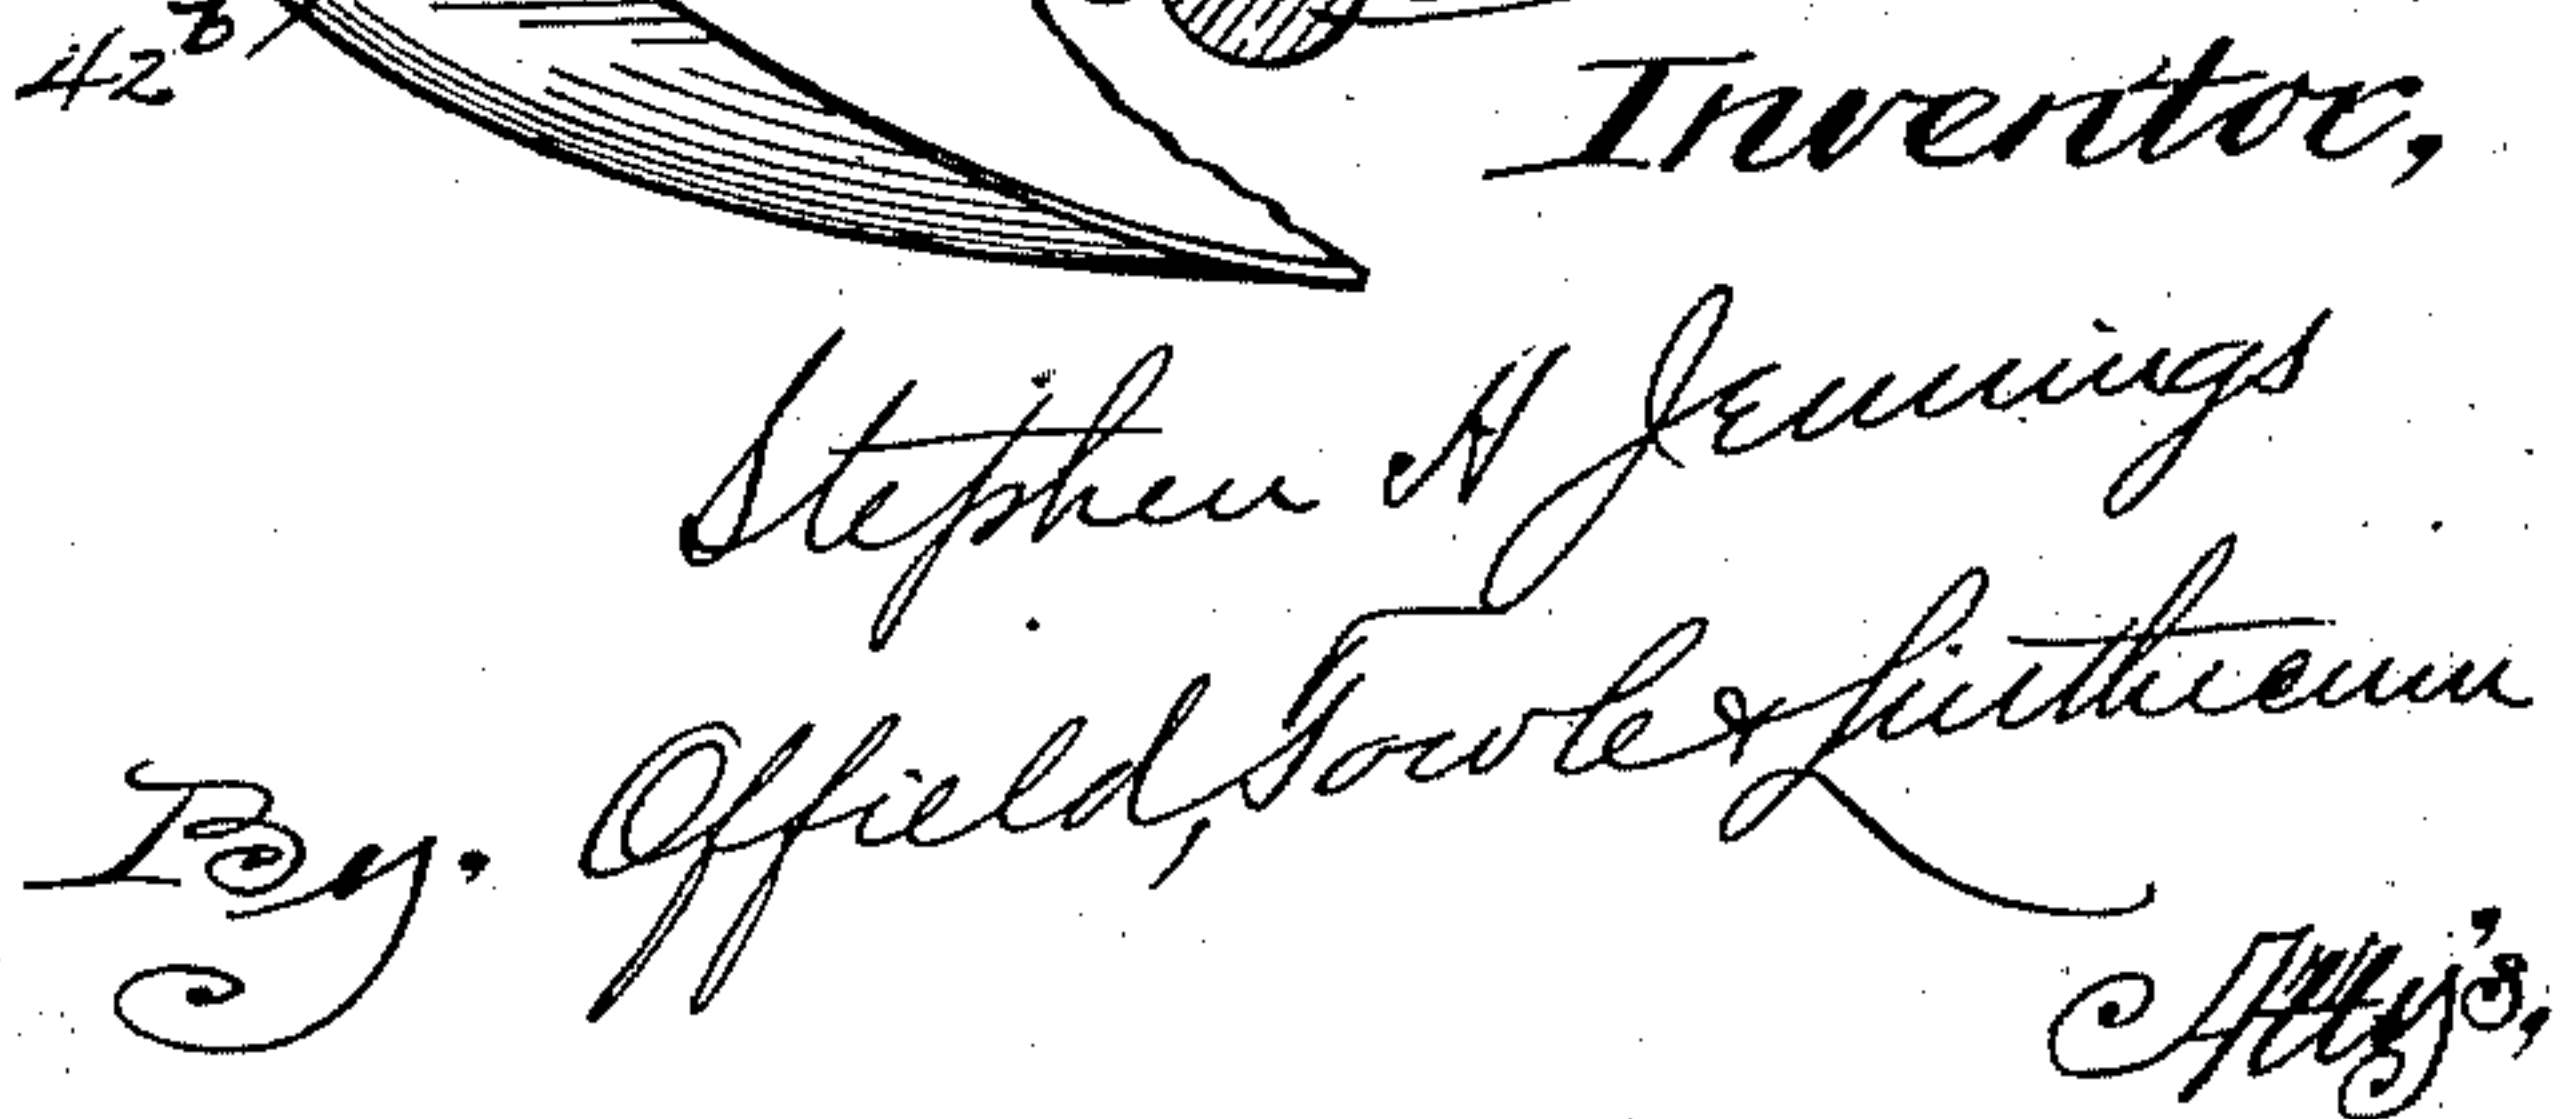 42b
Inventor,
Stephen H Jennings
By. Offield, Towle & Linthicum
Att'y's,